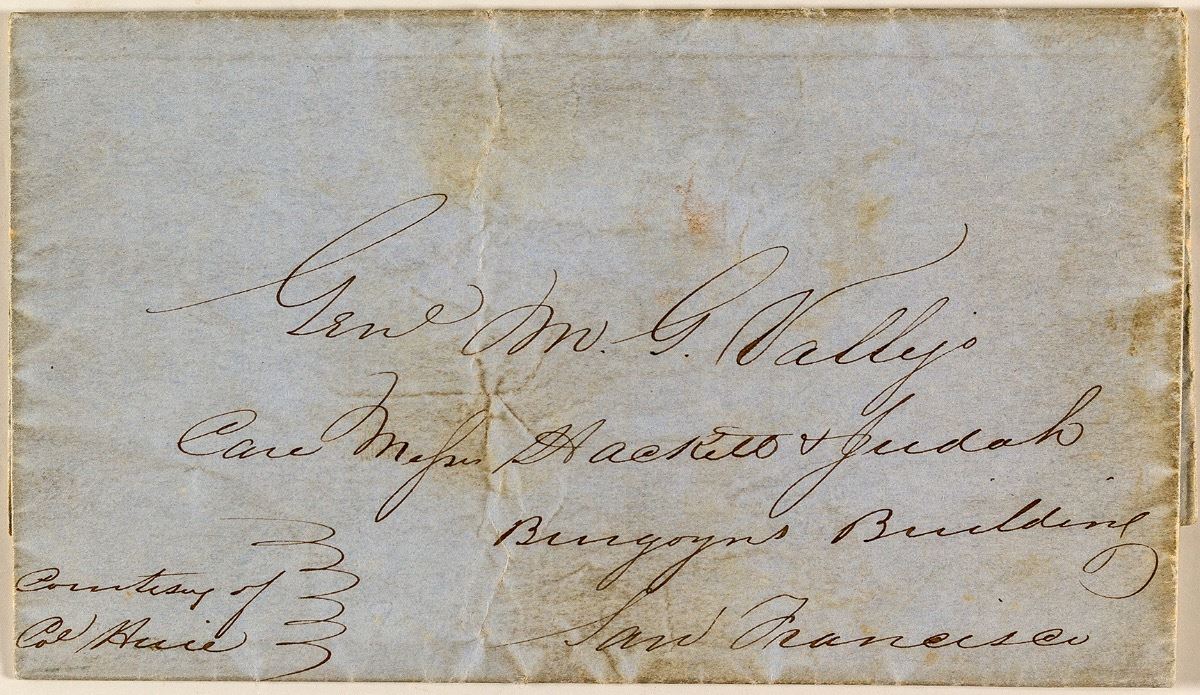 Genl M. G. Vallejo
Care Messrs Hackett & Judah
Burgoyns Building
San Francisco
Courtesy of
Col Huie